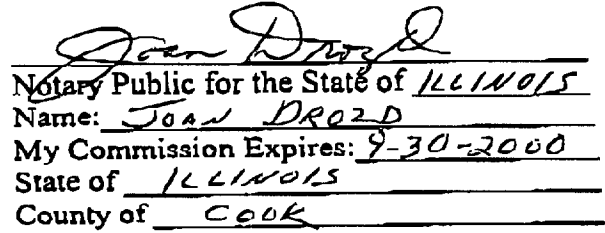 Joan Drozd
Notary Public for the State of ILLINOIS
Name: JOAN DROZD
My Commission Expires: 9-30-2000
State of ILLINOIS
County of COOK